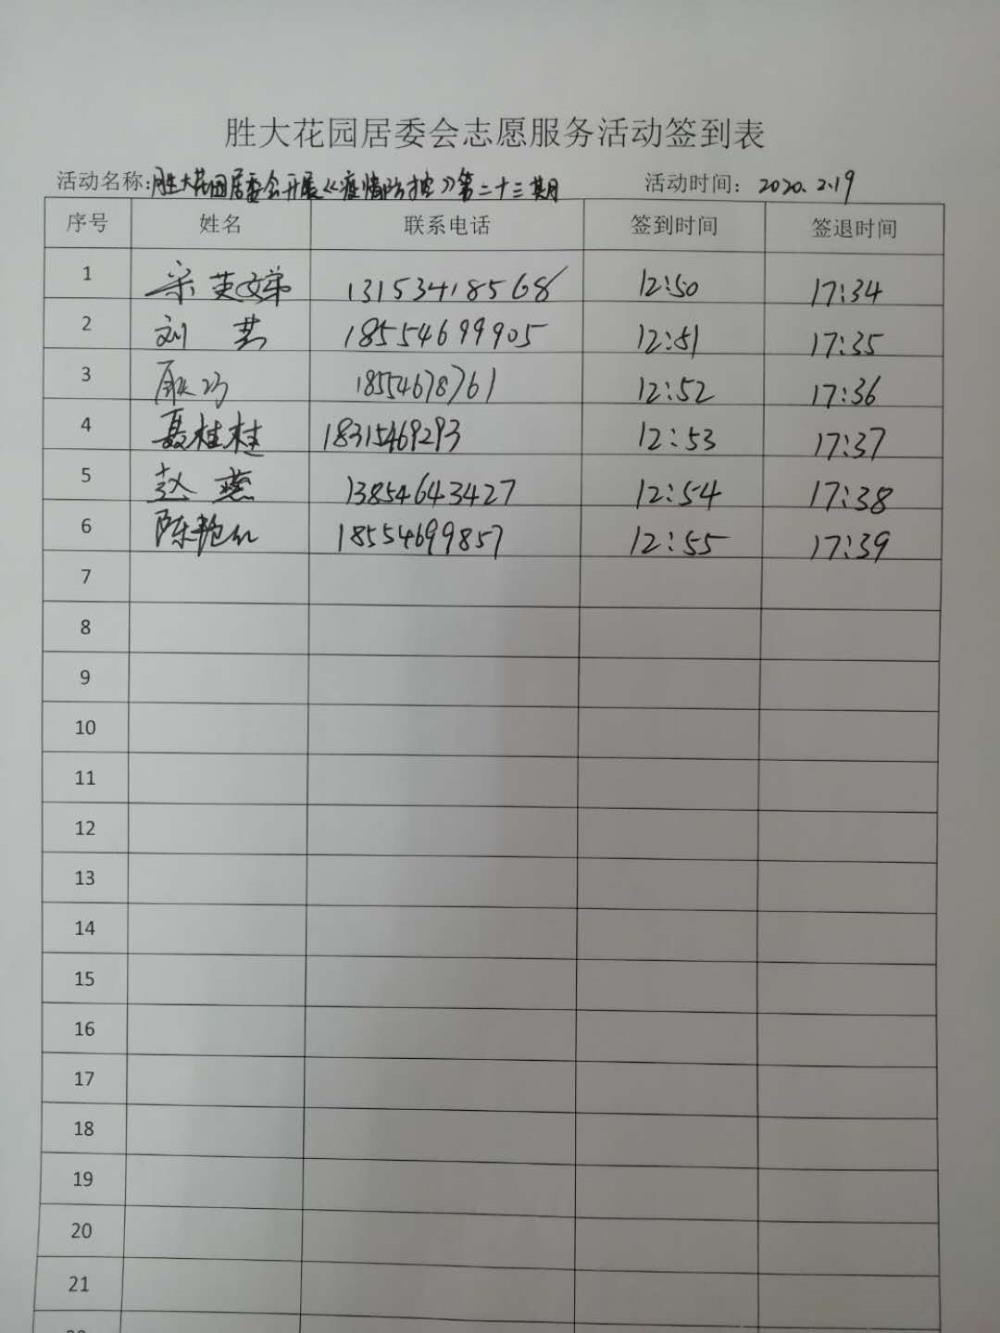 胜大花园居委会志愿服务活动签到表
活动名称:胜大花园居委会开展《疫情防控》第二十三期 活动时间: 2020.2.19
序号 姓名 联系电话 签到时间 签退时间
1 宋英娣 13153418568 12:50 17:34
2 刘 18554699905 12:51 17:35
3 18554678761 12:52 17:36
4 聂桂桂 18315469293 12:53 17:37
5 赵燕 13854643427 12:54 17:38
6 陈艳红 18554699857 12:55 17:39
7
8
9
10
11
12
13
14
15
16
17
18
19
20
21